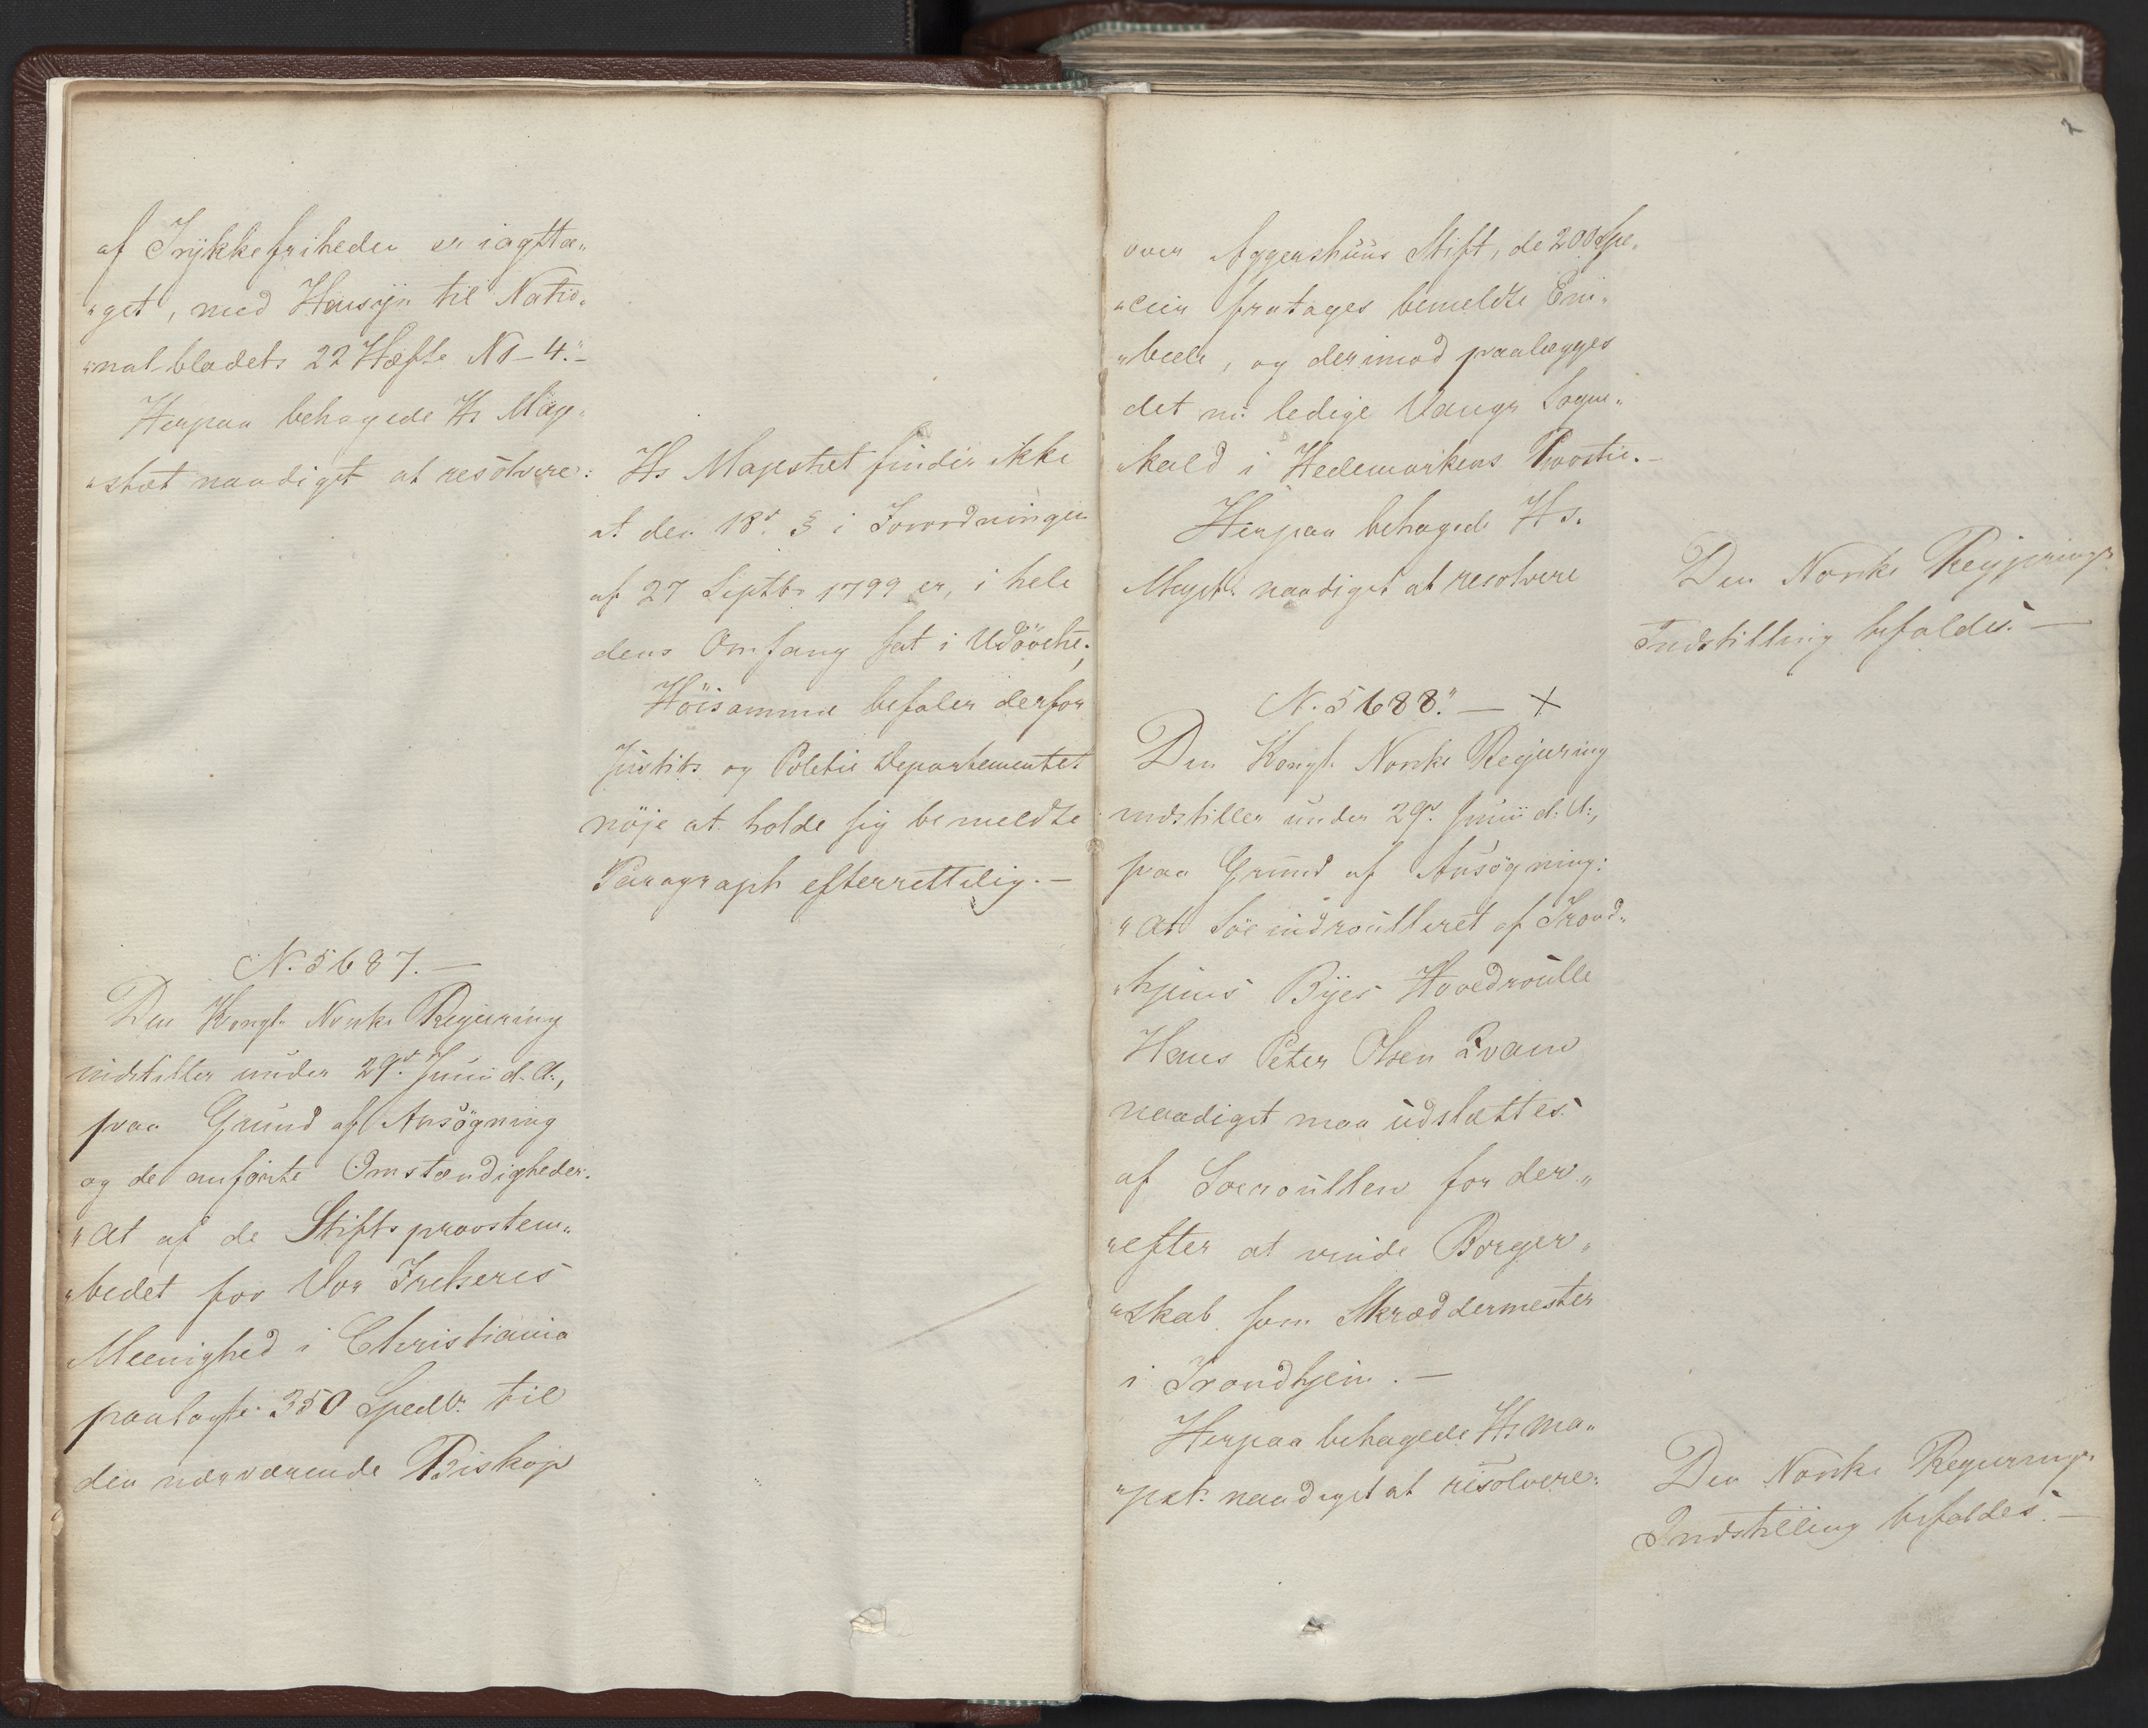 af Trÿkkefriheden er iagtta„
„get, med Hensÿn til Natio„
„nal-bladets 22 Hæfte No 4.“ –
Herpaa behagede Hs Maje„
„stæt naadigst at resolvere:
Hs Majestæt finder ikke
at den 18de § i Forordningen
af 27 Septbr 1799 er, i hele
dens Omfang sat i Udøvelse;
Höisamme befaler derfor
Justits og Politie Departementet
nöje at holde sig bemeldte
Paragraph efterrettelig. –
N. 5687. –
Den Kongl. Norske Regjering
indstiller under 29de Junii d. A.,
paa Grund af Ansögning
og de anførte Omstændigheder:
„At af de Stiftsprovstem„
„bedet for Vor Frelseres
Meenighed i Christiania
paalagte 350 Spedlr. til
den nærværende Biskop
2
over Aggershuus Stift, de 200 Spe„
„cier fratages bemeldte Em„
„bede, og derimod paalægges
det nu ledige Vangs Sogne„
kald i Hedemarkens Provstie. –
Herpaa behagede Hs.
Majst: naadigst at resolvere
Den Norske Regjerings
Indstilling bifaldes. –
N. 5688.“ – X
Den Kongl. Norske Regjering
indstiller under 29de Junii d. A.,
paa Grund af Ansögning:
„At Söe indroulleret af Trond„
„hjems Bÿes Hovedroulle
Hans Peter Olsen Qvam
naadigst maa udslættes
af Søeroullen for der„
„efter at vinde Borger„
„skab som Skræddermester
i Trondhjem. –
Herpaa behagede Hs Ma„
„jest: naadigst at resolvere:
Den Norske Regjerings
Indstilling bifaldes. –